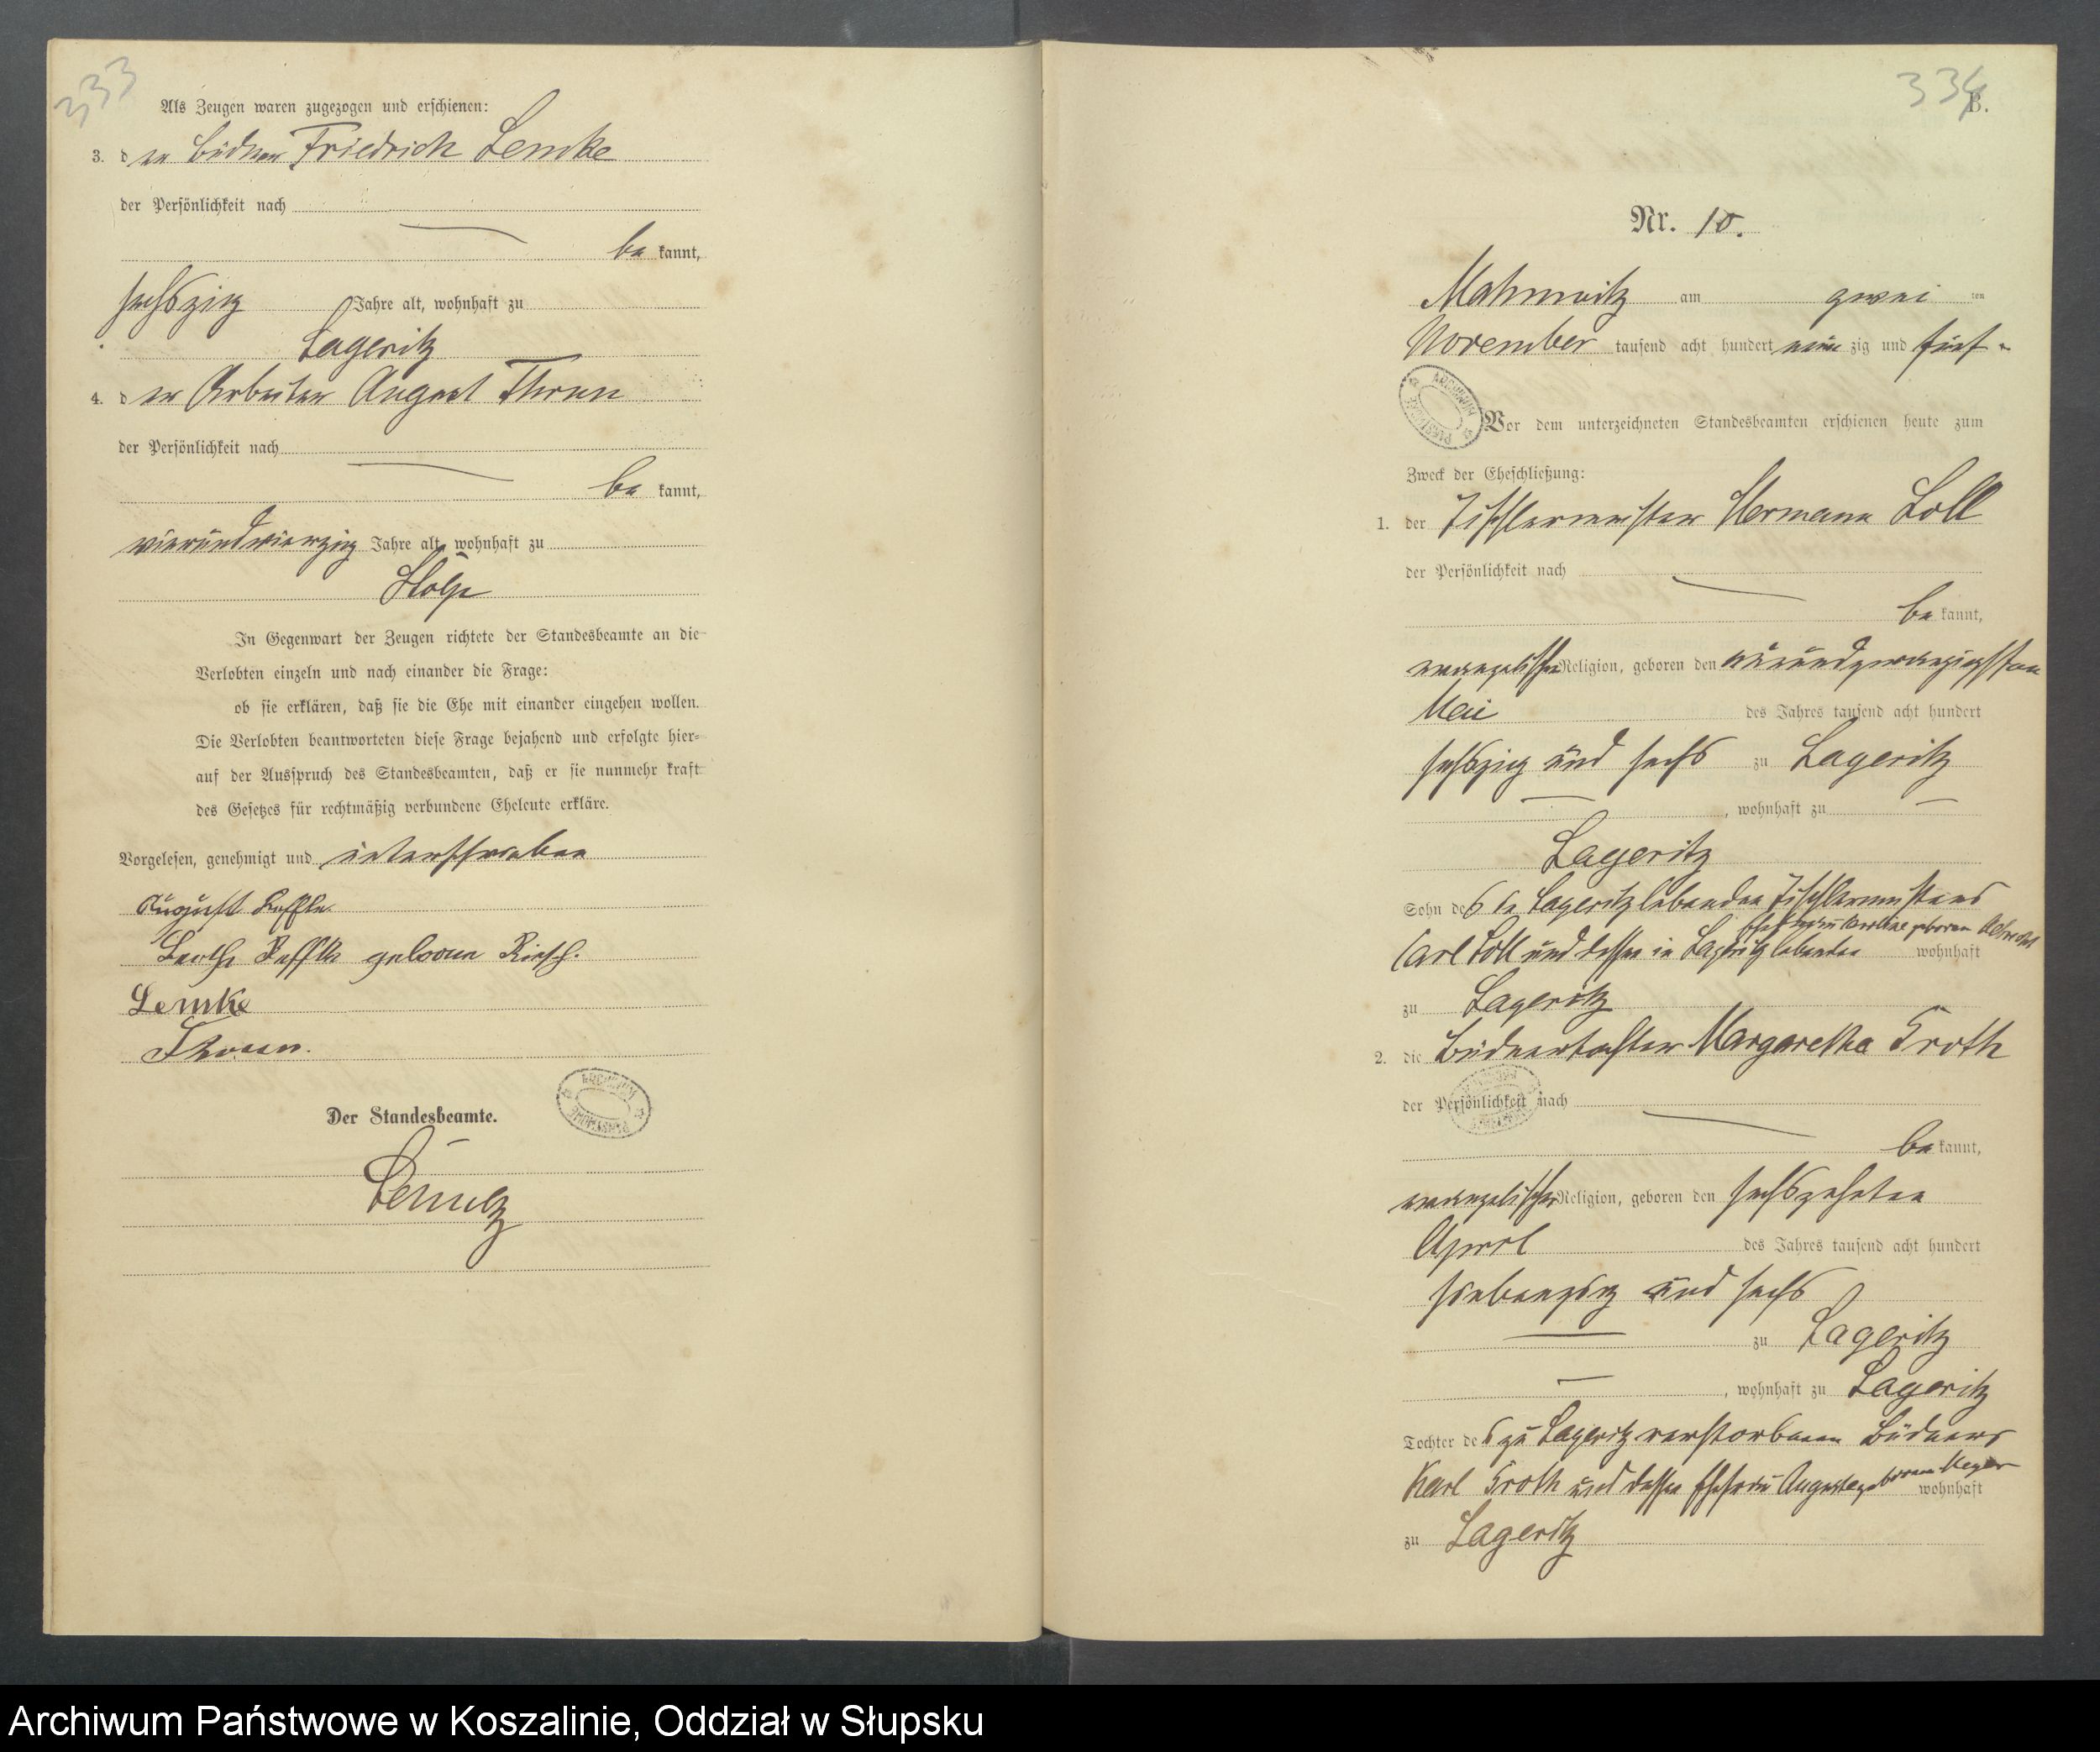 333
Als Zeugen waren zugezogen und erschienen:
3. der Büdner Friedrich Lemke
der Persönlichkeit nach
be kannt,
sechszig Jahre alt, wohnhaft zu
Lageritz
4. der Arbeiter August Thrun
der Persönlichkeit nach
be kannt,
vierundvierzig Jahre alt, wohnhaft zu
Stolp
In Gegenwart der Zeugen richtete der Standesbeamte an die
Verlobten einzeln und nach einander die Frage:
ob sie erklären, daß sie die Ehe mit einander eingehen wollen.
Die Verlobten beantworteten diese Frage bejahend und erfolgte hier-
auf der Ausspruch des Standesbeamten, daß er sie nunmehr kraft
des Gesetzes für rechtmäßig verbundene Eheleute erkläre.
Vorgelesen, genehmigt und unterschrieben
August
geborene
Lemke
Der Standesbeamte.
334
B.
Nr. 10.
Mahnwitz am zwei ten
November tausend acht hundert neun zig und fünf
Vor dem unterzeichneten Standesbeamten erschienen heute zum
Zweck der Eheschließung:
1. der Tischlermeister Hermann Loll
der Persönlichkeit nach
be kannt,
evangelischer Religion, geboren den neunundzwanzigsten
Mai des Jahres tausend acht hundert
sechszig und sechs zu Lageritz
, wohnhaft zu
Lageritz
Sohn des in Lageritz lebenden Tischlermeisters
Ehefrau geborene
Carl Loll und dessen in Lageritz lebenden wohnhaft
zu Lageritz
2. die Büdnertochter Margaretha Groth
der Persönlichkeit nach
be kannt,
evangelischer Religion, geboren den sechszehnten
April des Jahres tausend acht hundert
siebenzig und sechs
zu Lageritz
, wohnhaft zu Lageritz
Tochter des zu Lageritz verstorbenen Büdners
Karl Groth und dessen Ehefrau Auguste geborene Meyer wohnhaft
zu Lageritz
Archiwum Państwowe w Koszalinie, Oddział w Słupsku